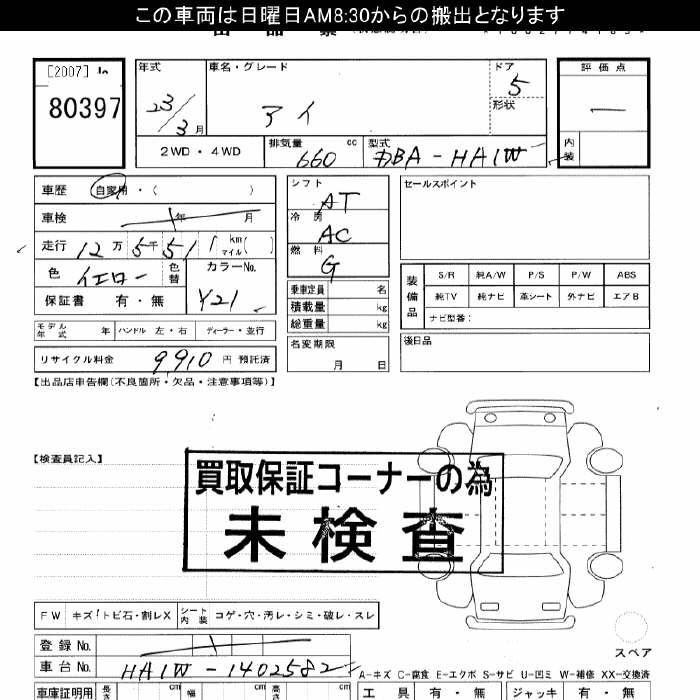 この車両は日曜日AM8:30からの搬出となります
[2007]
80397
年式 車名・グレード ドア 評価点
23/3月 アイ 5 形状 —
2WD・4WD 排気量 660 cc 型式 DBA-HA1W 内装
車歴 自家用・( )
車検 年 月
走行 12万5千51 km マイル( )
色 イエロー 色替 カラーNo. Y21
保証書 有・無
シフト AT
冷房 AC
燃料 G
乗車定員 名
積載量 kg
総重量 kg
名変期限 月 日
セールスポイント
装備品 S/R 純A/W P/S P/W ABS
純TV 純ナビ 革シート 外ナビ エアB
ナビ型番:
後日品
モデル年式 年 ハンドル 左・右 ディーラー・並行
リサイクル料金 9910 円 預託済
【出品店申告欄(不良箇所・欠品・注意事項等)】
【検査員記入】
買取保証コーナーの為
未検査
FW キズ・トビ石・割レX シート内装 コゲ・穴・汚レ・シミ・破レ・スレ
登録No.
車台No. HA1W-1402582
スペア
A-キズ C-腐食 E-エクボ S-サビ U-凹ミ W-補修 XX-交換済
車庫証明用 長さ cm 幅 cm 高さ cm 工具 有・無 ジャッキ 有・無